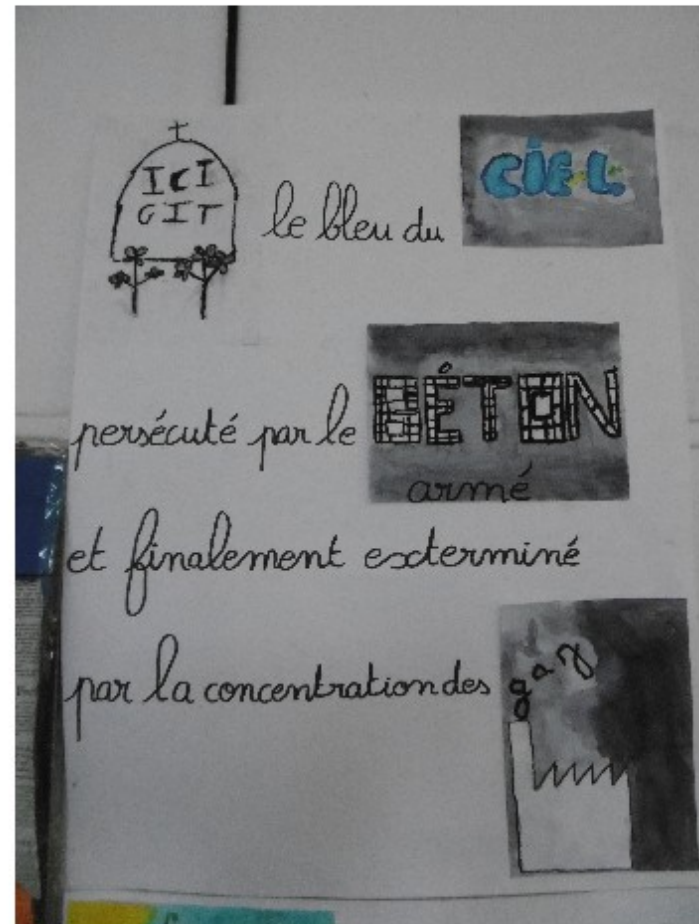 ICI
GIT
le bleu du CIEL
persécuté par le BÉTON
armé
et finalement exterminé
par la concentration des gaz